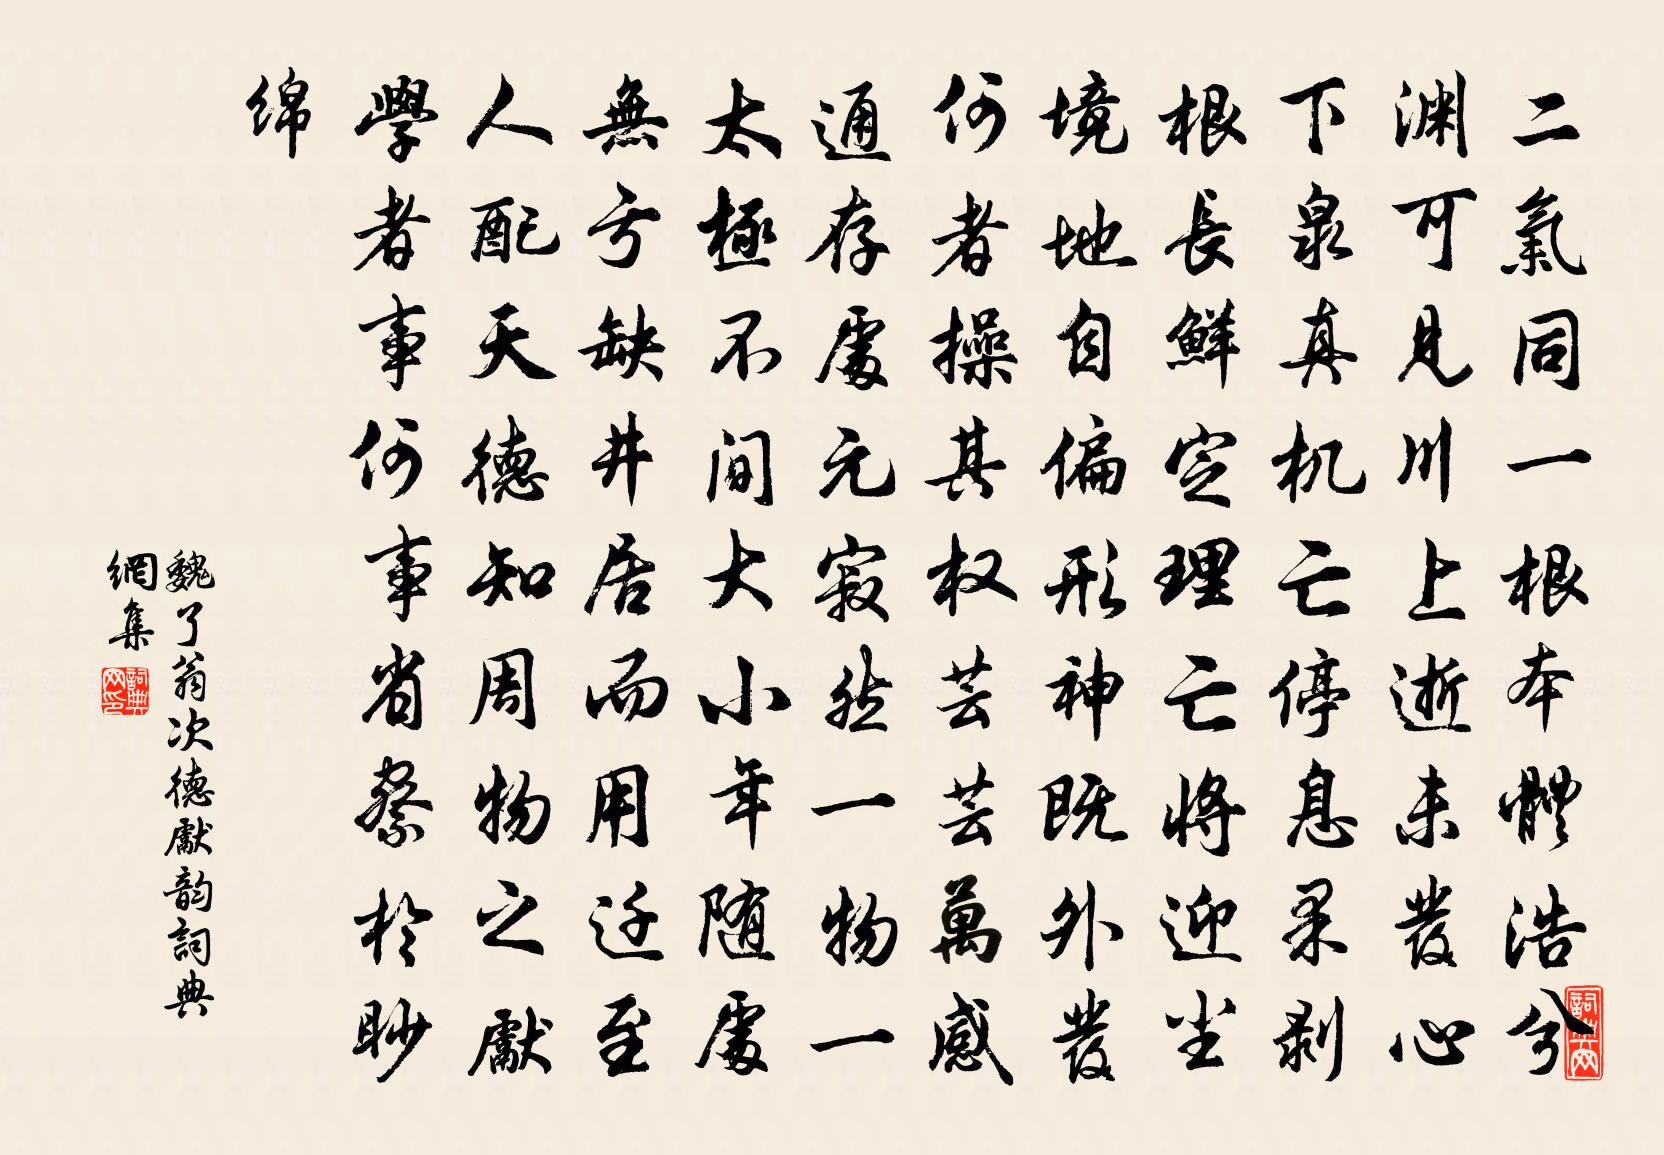 二氣同一根本體浩兮
渊可見川上逝未發心
下泉真机亡停息柔剥
根長鮮定理亡將迎尘
境地自偏形神既外發
何者操其权芸芸萬感
通存處元寂然一物一
太極不间大小年随處
無亏缺井居而用迁至
人配天德知周物之獻
學者事何事省察於眇
绵
魏了翁次德獻韵詞典
網集